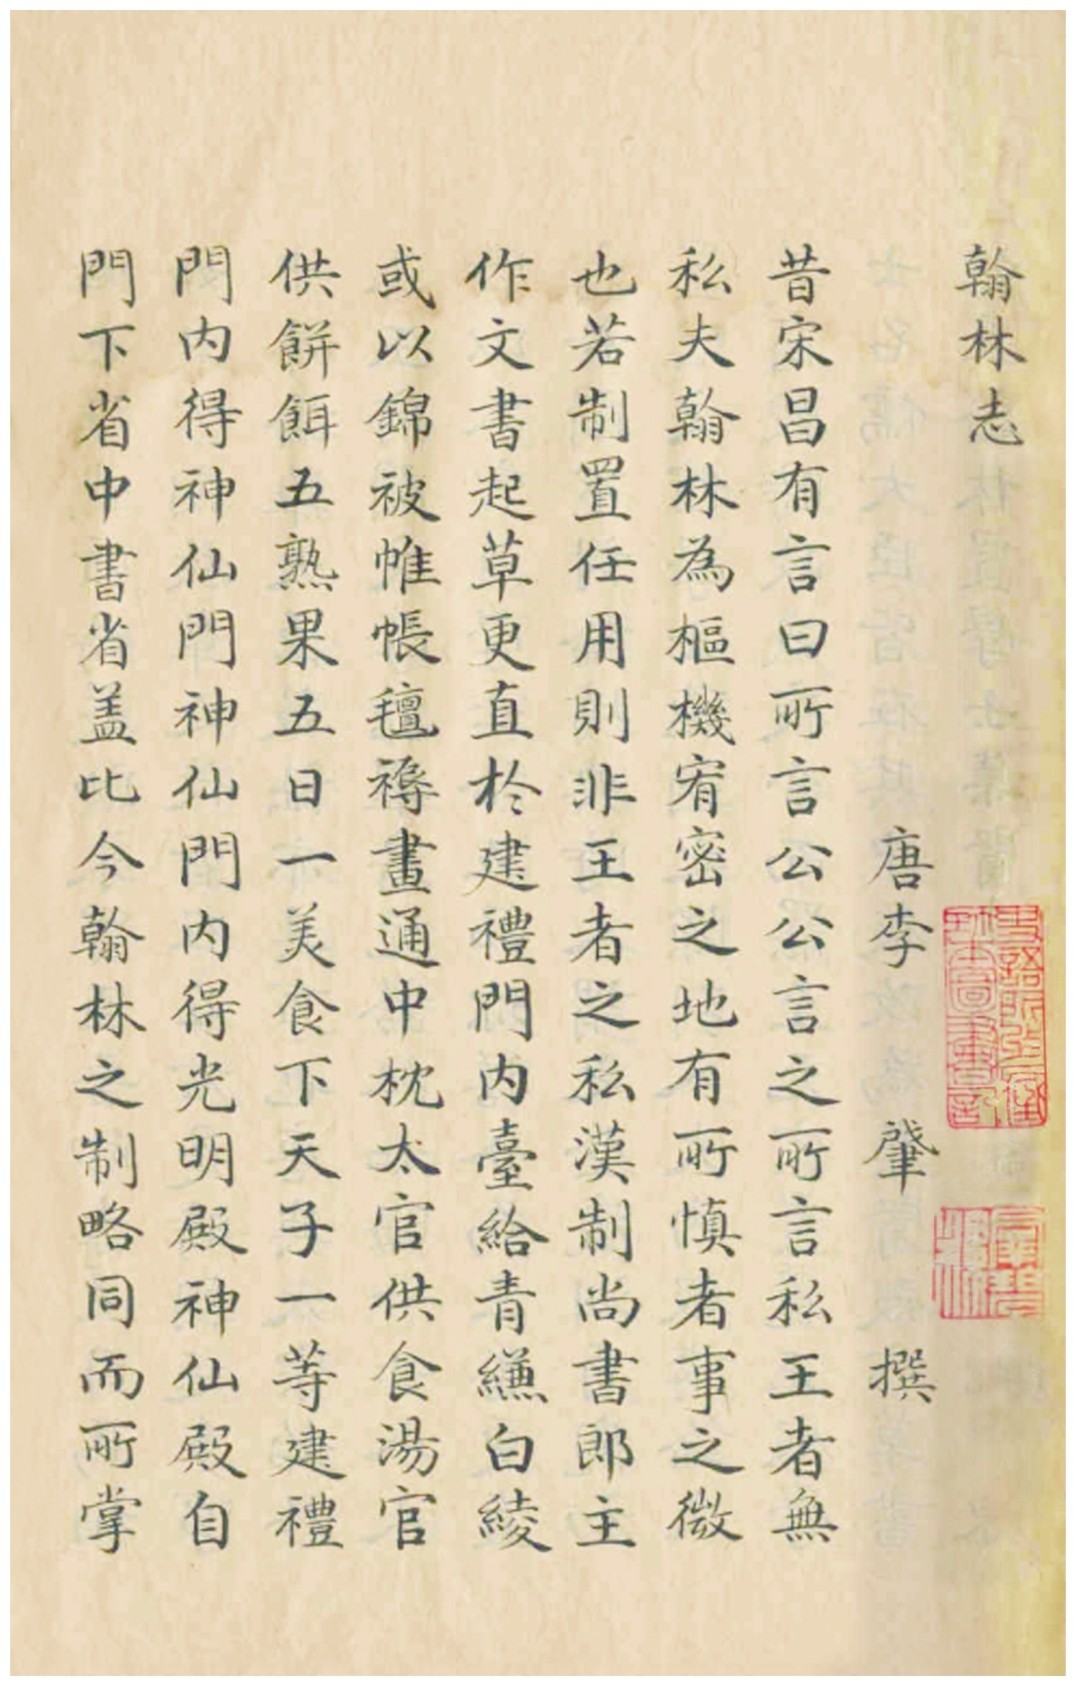 翰林志
唐李肇撰
昔宋昌有言曰所言公公言之所言私王者無
私夫翰林為樞機宥密之地有所慎者事之微
也若制置任用則非王者之私漢制尚書郎主
作文書起草更直於建禮門內臺給青縑白綾
或以錦被帷帳氊褥畫通中枕太官供食湯官
供餅餌五熟果五日一美食下天子一等建禮
門內得神仙門神仙門內得光明殿神仙殿自
門下省中書省蓋比今翰林之制略同而所掌